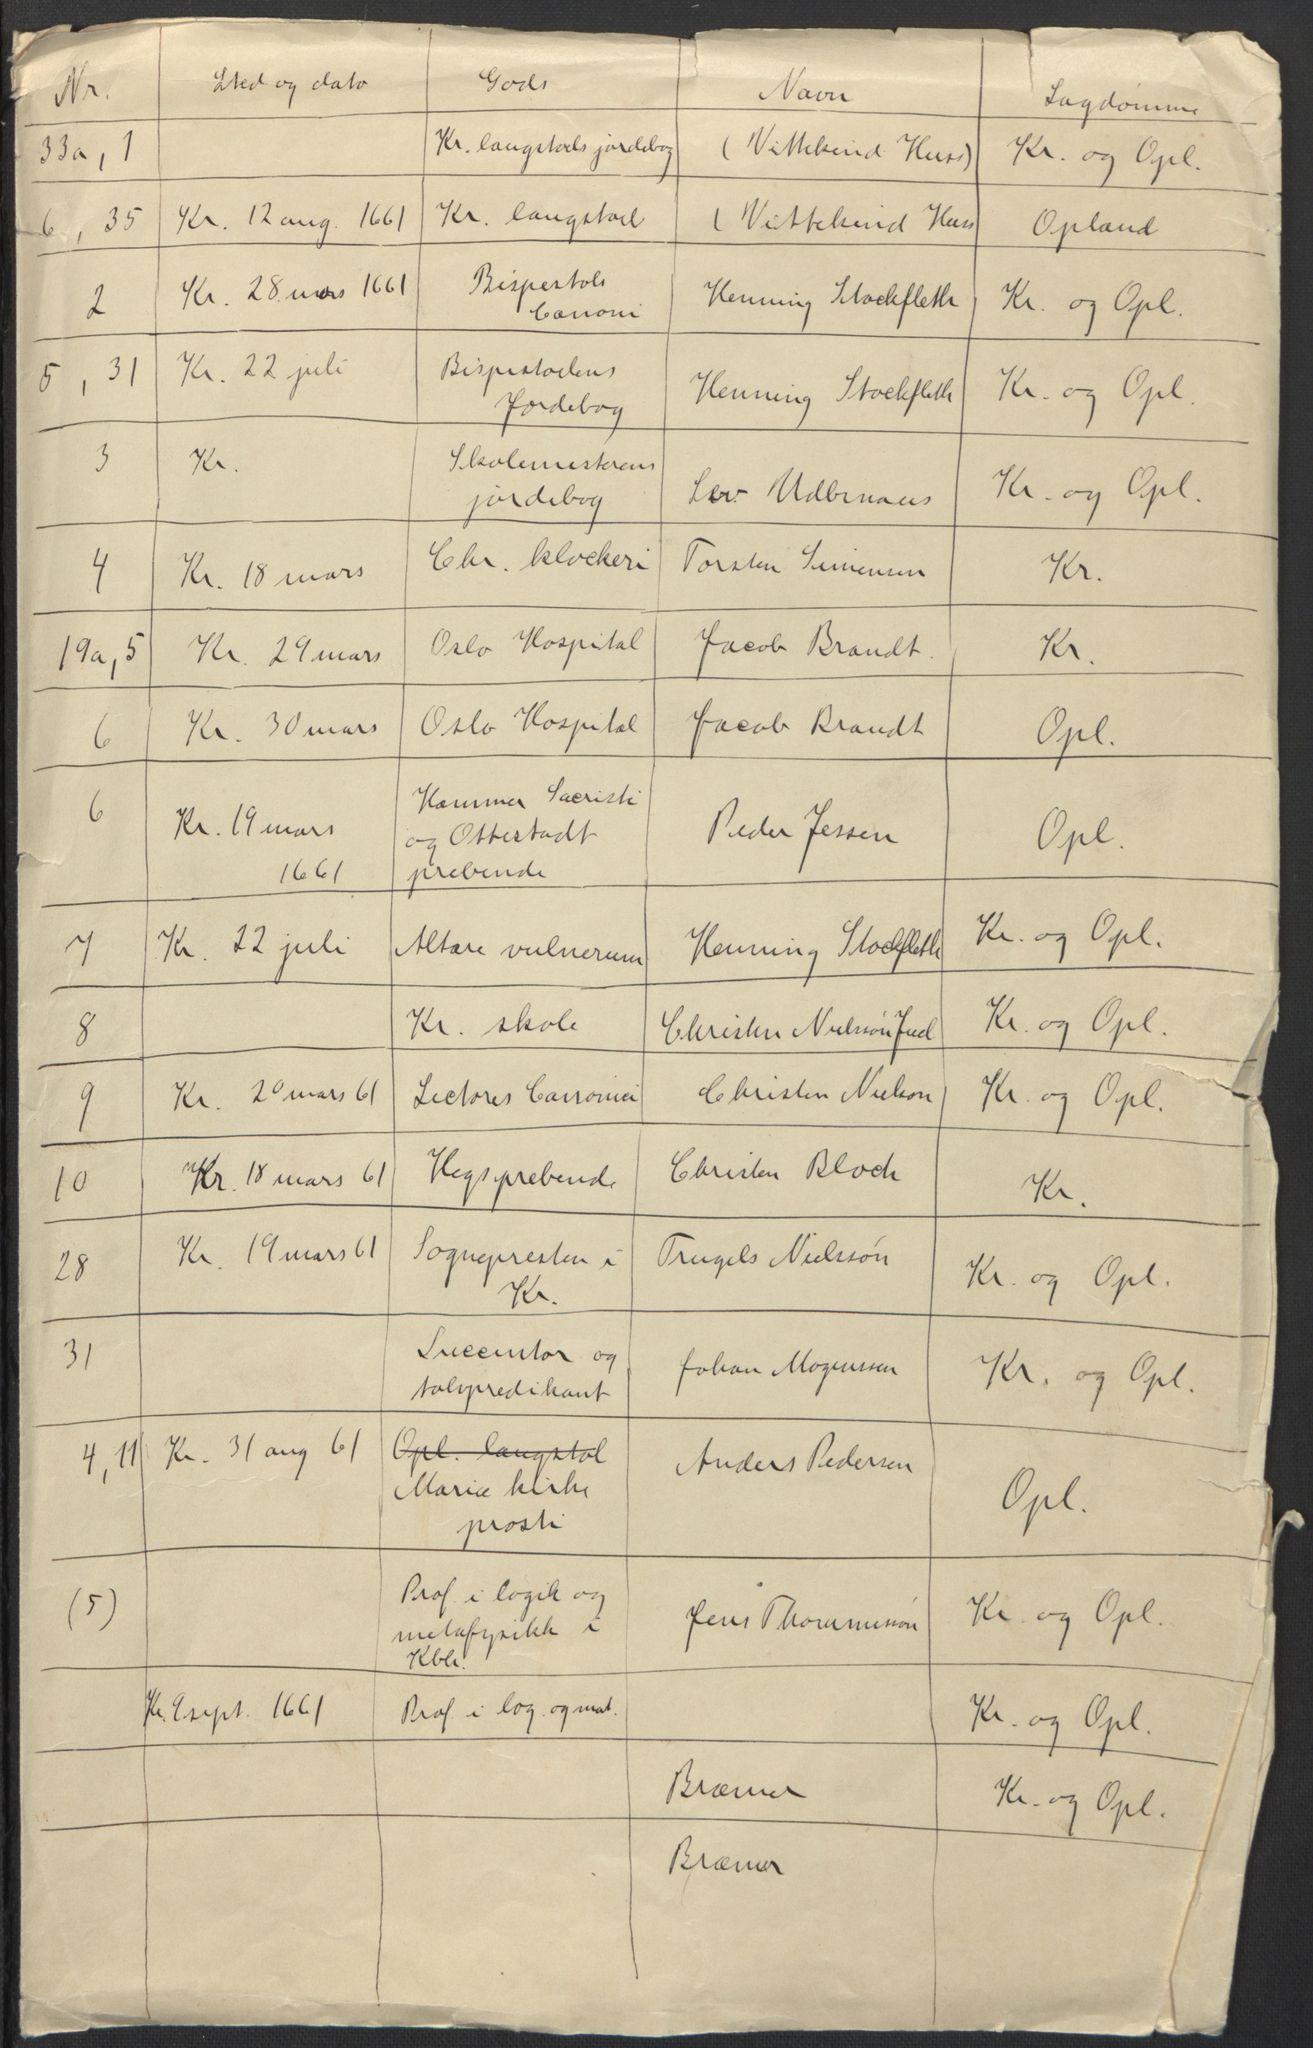 Nr. Sted og dato Gods Navn Lagdømme
33a, 1 Kr. laugstols jordebog (Vittekind Huss) Kr. og Opl.
6, 35 Kr. 12 aug. 1661 Kr. laugstoel (Vittekind Huss Opland
2 Kr. 28 mars 1661 Bispestols Henning Stockfleth Kr. og Opl.
Canoni
5, 31 Kr. 22 juli Bispestoelens Henning Stockfleth Kr. og Opl.
Jordebog
3 Kr. Skolemesterens Kr. og Opl.
jordebog
4 Kr. 18 mars Chr. klockeri Torsten Simensen Kr.
19a, 5 Kr. 29 mars Oslo Hospital Jacob Brandt. Kr.
6 Kr. 30 mars Oslo Hospital Jacob Brandt Opl.
6 Kr. 19 mars Hammer Sacristi Peder Jessen Opl.
og Ottestadt
1661 prebende
7 Kr. 22 juli Altare vulnerum Henning Stockfleth Kr. og Opl.
8 Kr. skole Christen Nielssøn Juel Kr. og Opl.
9 Kr. 20 mars 61 Lectores Canonici Christen Nielson Kr. og Opl.
10 Kr. 18 mars 61 Hegsprebende Christen Block Kr.
28 Kr. 19 mars 61 Sognepresten i Trugels Nielssøn Kr. og Opl.
Kr.
31 Succentor og Johan Mogenssen Kr. og Opl.
tolvpredikant
4, 11 Kr. 31 aug 61 Opl. laugstol Anders Pedersen Opl.
Mariæ kirke
prosti
(5) Prof. i logik og Jens Thommesøn Kr. og Opl.
metafysikk i
Kbh.
Kr. 9 sept. 1661 Prof. i log. og mat. Kr. og Opl.
Bræmer Kr. og Opl.
Bræmer